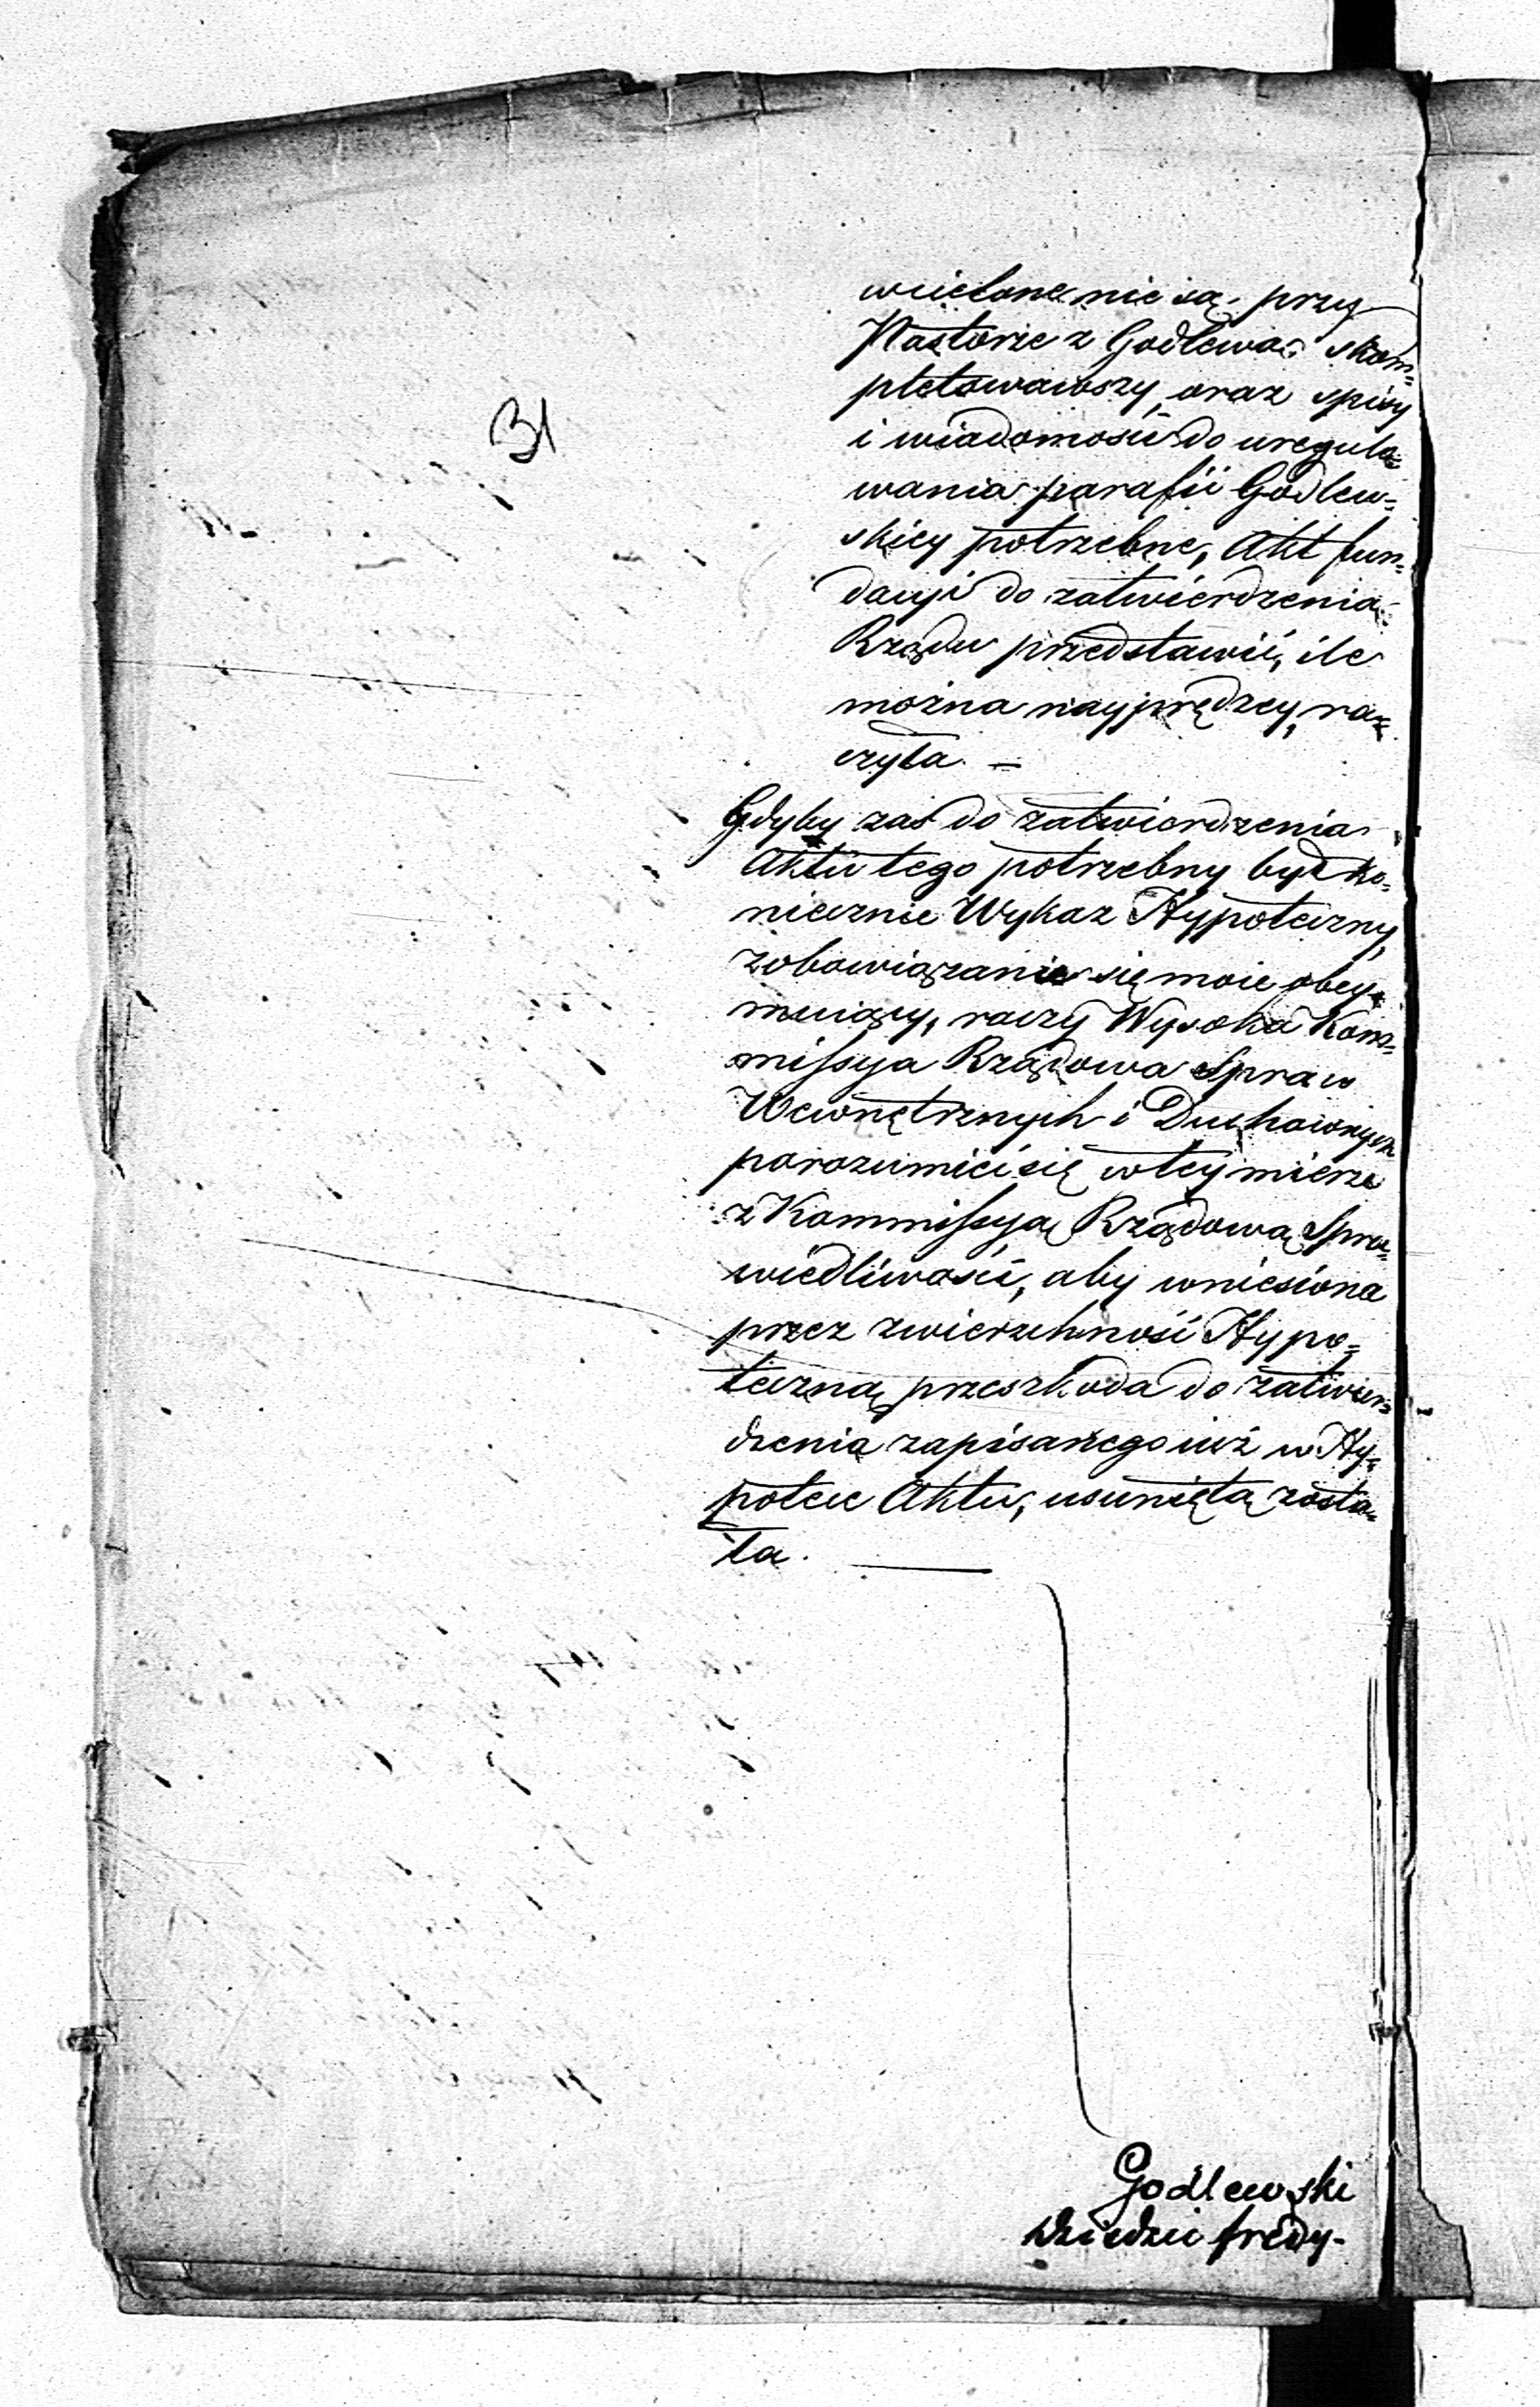 31
wcielone nie są, przy
Pastorze z Godlewa skom=
pletowawszy, oraz spisy
i wiadomości do uregulo=
wania parafii Godlew=
skiey potrzebne, Akt fun=
dacyi do zatwierdzenia
Rządu przedstawić, ile
można nayprędzey, ra=
czyła. —
Gdyby zaś do zatwierdzenia
Aktu tego potrzebny był ko=
niecznie Wykaz Hypoteczny,
zobowiązanie się moie obey=
muiący, raczy Wysoka Kom=
missya Rządowa Spraw
Wewnętrznych i Duchownych
porozumieć się w tey mierze
z Kommissyą Rządową Spra=
wiedliwości, aby wniesiona
przez zwierzchność Hypo=
teczną przeszkoda do zatwier=
dzenia zapisanego iuż w Hy=
potece Aktu, usuniętą zosta=
ła. —
Godlewski
Dziedzic fredy-